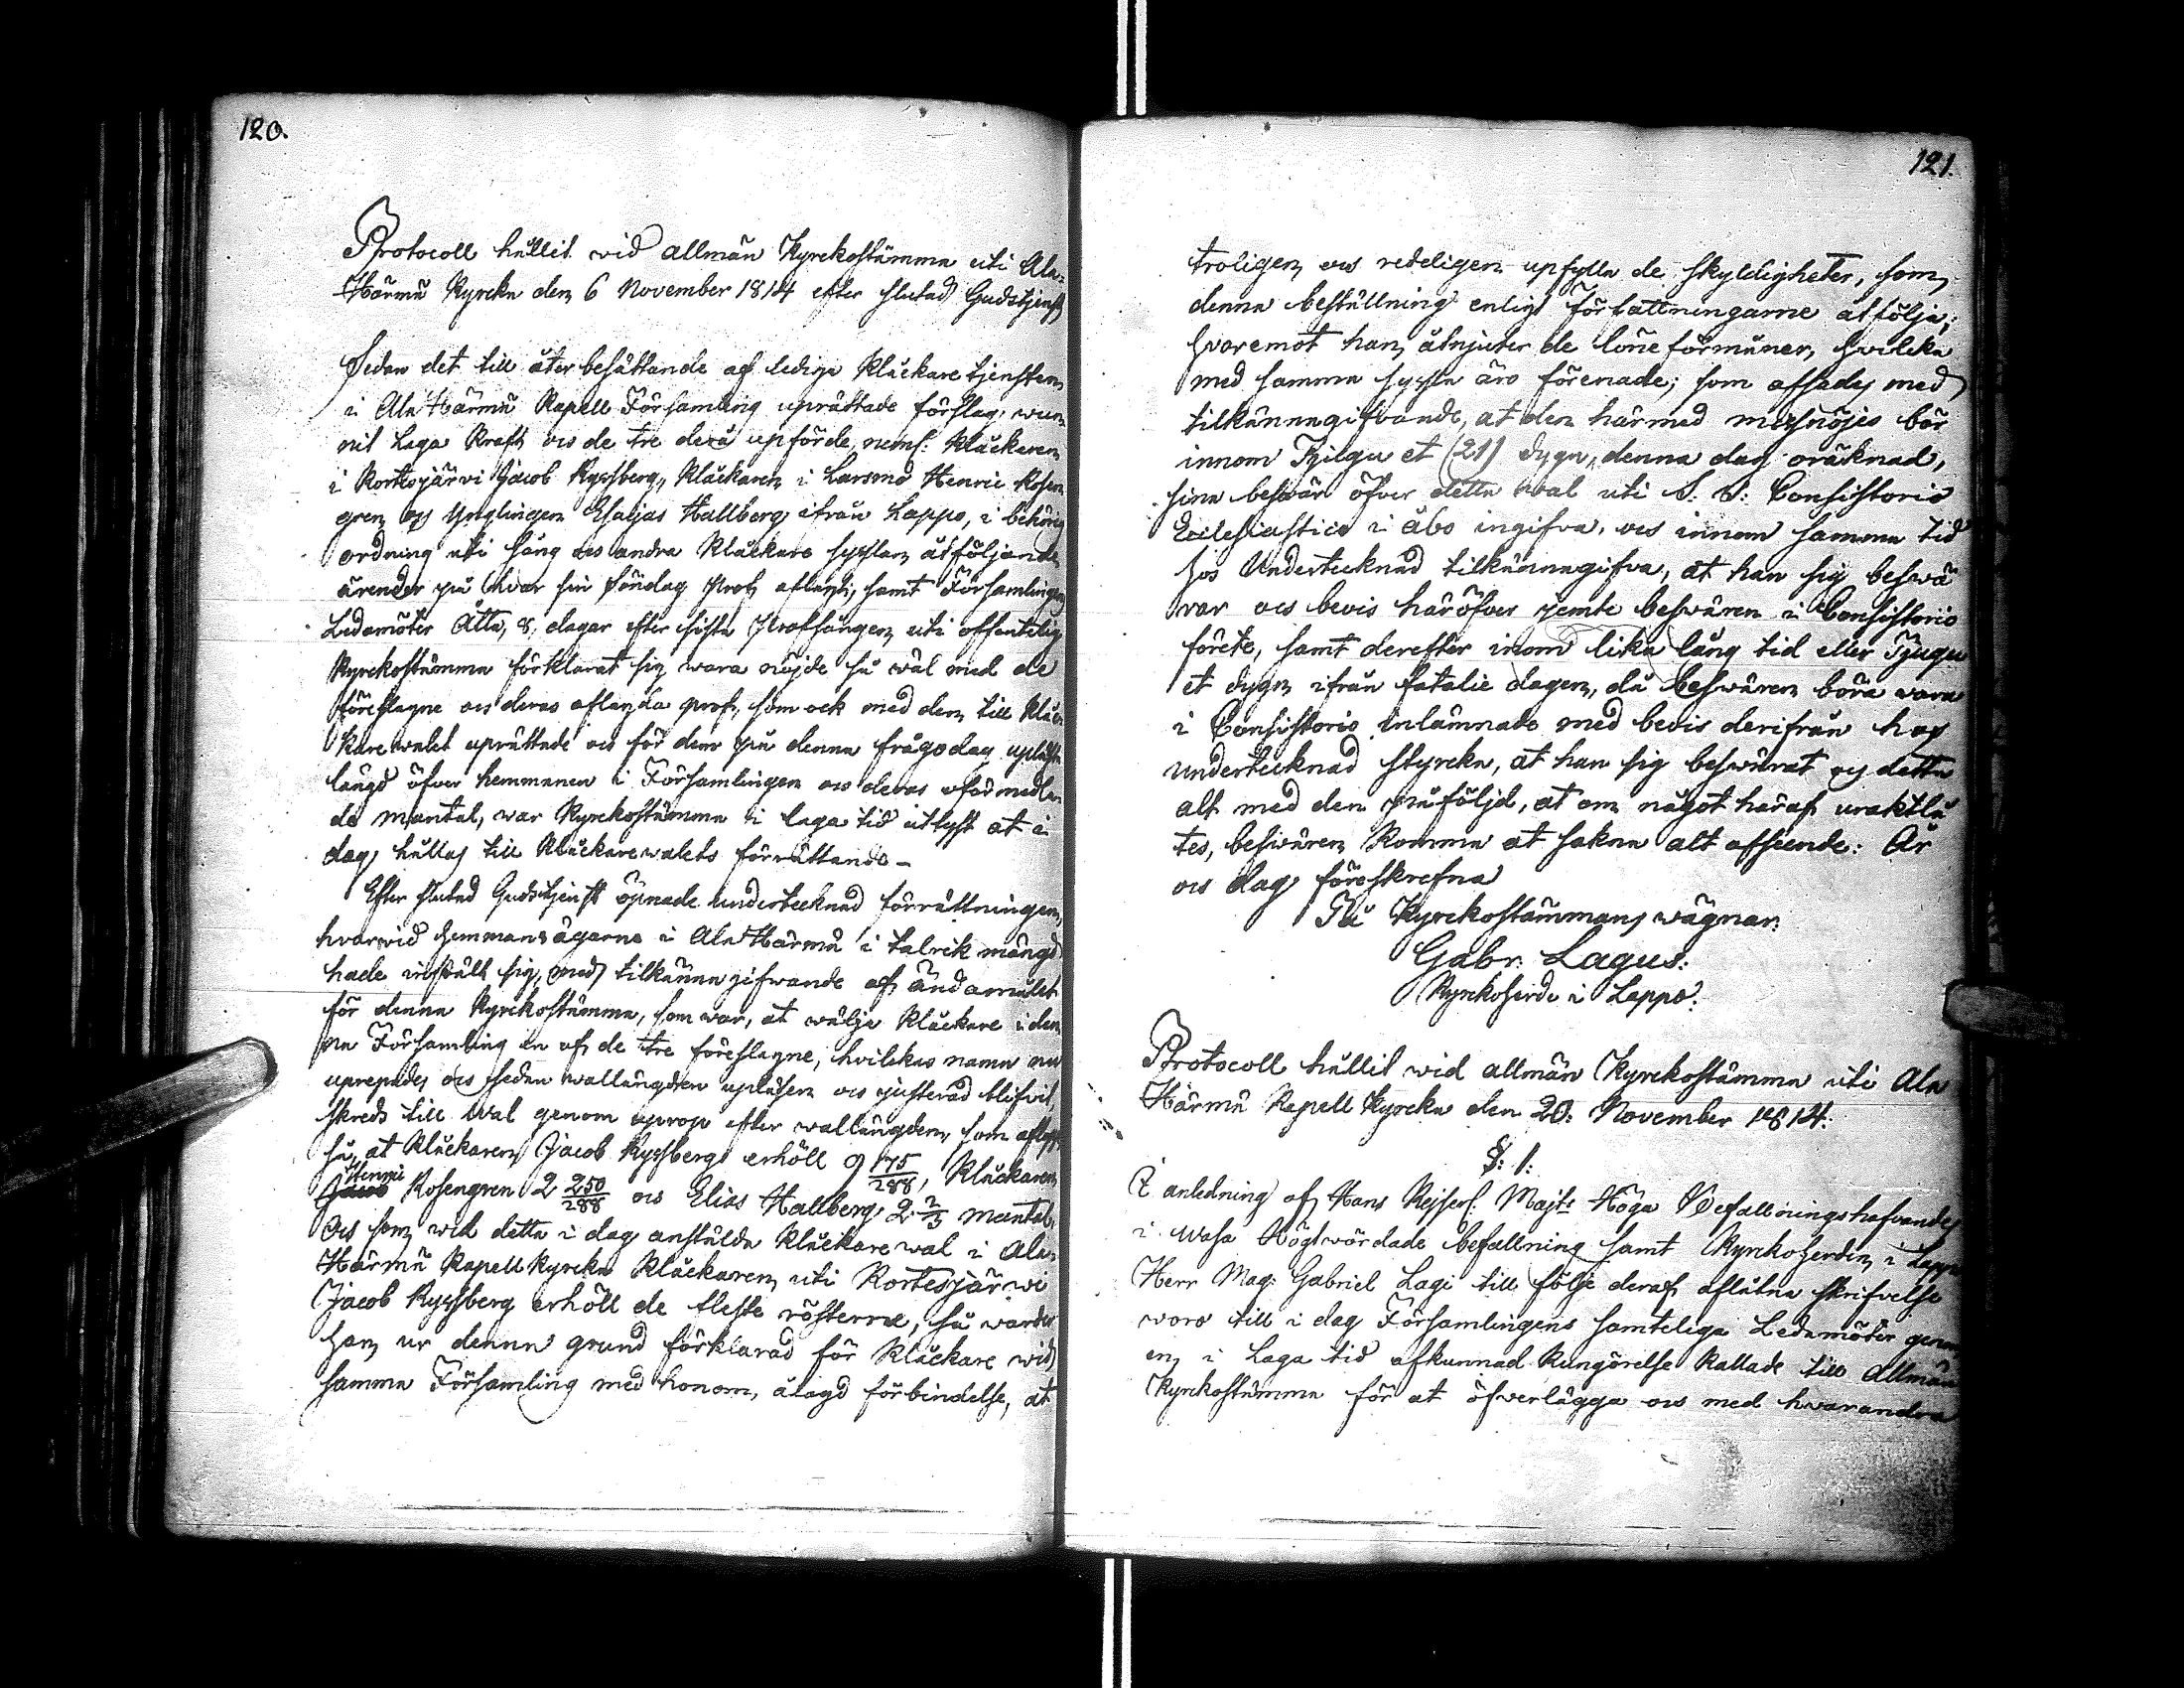 120.
Protocoll hållit wid allmän Kyrckostämma uti Ala-
Härmä Kyrcka den 6 November 1814 efter slutad Gudstjenst
Sedan det till återbesättande af lediga Klåckaretjensten
i Ala Härmä Kapell Församling uprättade förslag, wun-
nit Laga Kraft ocs de tre derå upförde, neml: Klåckaren
i Kortesjärvi Jacob Ryssberg, Klåckaren i Larsmo Henric Rosen-
gren ocs Ynglingen Esaijas Hallberg ifrån Lappo, i behörig
ordning uti sång ocs andra Klåckare sysslan åtföljande
ärender på hvar sin söndag Prof aflagt, samt Församlingens
Ledamöter Åtta, 8, dagar efter sista Profsången uti offentelig
Kyrckostämma förklarat sig wara nöjde så wäl med de
föreslagne ocs deras aflagda prof, som ock med den till Klåc-
karewalet uprättade ocs för dem på denna frågodag upläste
längd öfver hemmanen i Församlingen ocs deras oförmedla-
de mantal, war Kyrckostämma i laga tid utlyst at i
dag hållas till Klåckarewalets förrättande -
Efter slutad Gudstjenst öpnade undertecknad förrättningen,
hvarwid Hemmansägarne i Ala Härmä i talrik mängd
hade inställt sig, med tilkänna gifwande af ändamålet
för denna Kyrckostämma, som war, at wälja Klåckare i den-
na Församling en af de tre föreslagne, hvilckas namn nu
upropades ocs sedan wallängden upläsen ocs justerad blifvit,
skreds till wal genom uprop efter wallängden, som aflopp
så, at Klåckaren Jacob Ryssberg erhöll 9 175/288, Klåckaren
Henric
Jacob Rosengren 2 250/288 ocs Elias Hallberg 2 2/3 mantal.
Ocs som wid detta i dag anstälda Klåckarewal i Ala-
Härmä Kapell Kyrcka Klåckaren uti Kortesjärwi
Jacob Ryssberg erhöll de fleste rösterne, så warder
han ur denna grund förklarad för Klåckare wid
samma Församling med honom, ålagd förbindelse, at
121.
troligen ocs redeligen upfylla de skyldigheter, som
denna beställning enligt författningarne åtfölja;
hvaremot han åtnjuter de löneförmåner, hvilcka
med samma syssla äro förenade; som afsades med
tilkännagifvande, at den härmed missnöjes bör
innom Tjugu et (21) dygn, denna dag oräknad,
sina beswär öfver detta wal uti S. S: Consistorio
Ecclesiastico i Åbo ingifva, ocs innom samma tid
hos Undertecknad tilkännagifva, at han sig beswä-
rar ocs bevis häröfver jemte beswären i Consistorio
förete, samt derefter inom lika lång tid eller Tjugu
et dygn ifrån fatalie dagen, då beswären böra wara
i Consistorio inlämnade med bevis derifrån hos
undertecknad styrcka, at han sig beswärat ocs detta
alt med den påföljd, at om något häraf uraktlå-
tes, beswären komma at sakna alt afseende: År
ocs dag föreskrefna
På Kyrckostämmans wägnar:
Gabr: Lagus:
Kyrckoherde i Lappo:
Protocoll hållit wid allmän Kyrckostämma uti Ala
Härmä Kapell Kyrcka den 20: November 1814:
§: 1:
I anledning af Hans Kejserl: Majts Höga Befallningshafvandes
i Wasa Högtwördade befallning samt Kyrckoherden i Lappo
Herr Mag: Gabriel Lagi till följe deraf aflåtna skrifvelse
woro till i dag Församlingens samteliga Ledamöter genom
en i Laga tid afkunnad Kungörelse kallade till Allmän
Kyrckostämma för at öfverlägga ocs med hwarandra